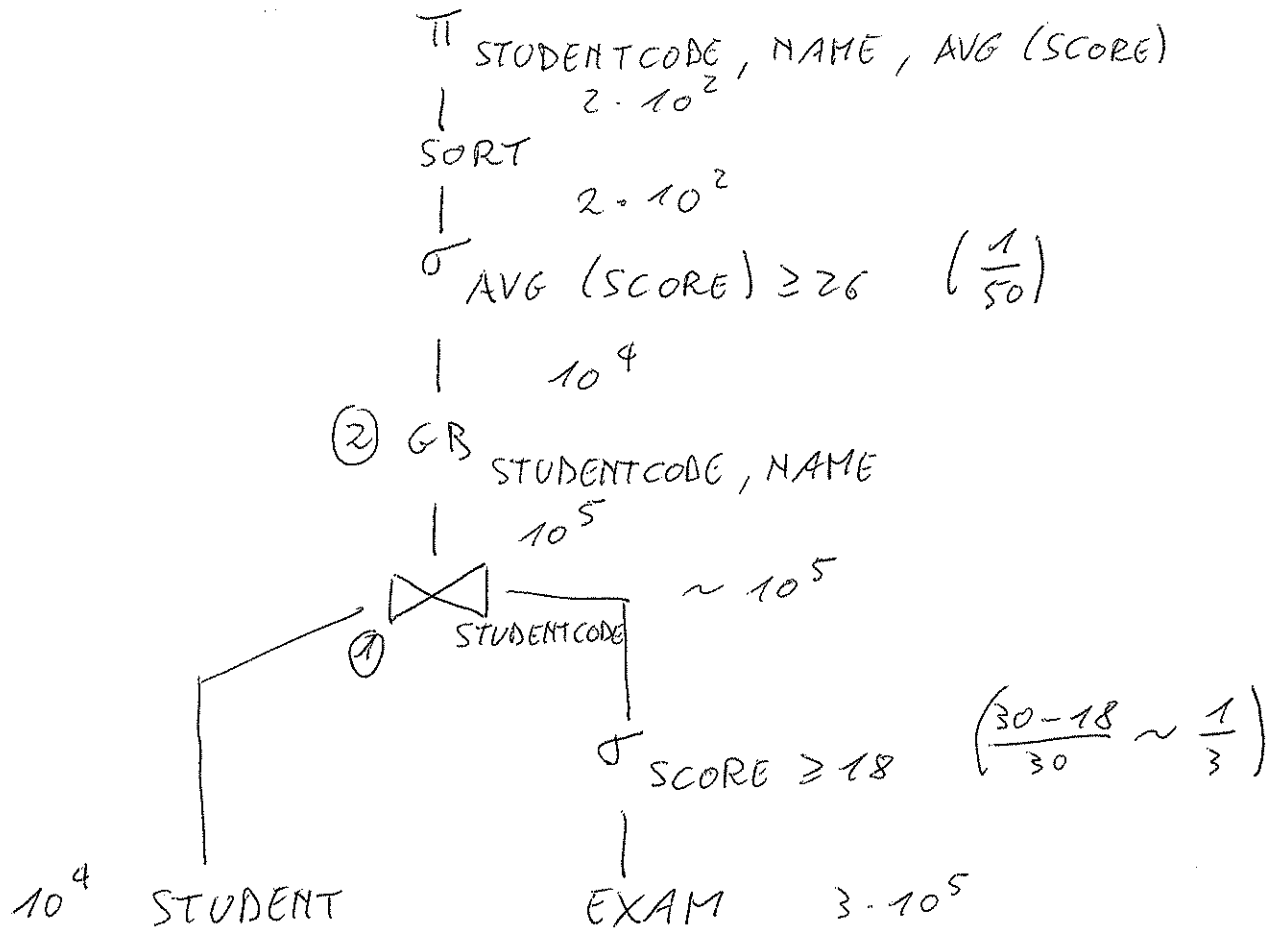 π STUDENTCODE, NAME, AVG (SCORE)
2 · 10²
SORT
2 · 10²
σ AVG (SCORE) ≥ 26 (1/50)
10⁴
② GB STUDENTCODE, NAME
10⁵
~ 10⁵
① STUDENTCODE
σ SCORE ≥ 18 ((30-18)/30 ~ 1/3)
10⁴ STUDENT EXAM 3 · 10⁵